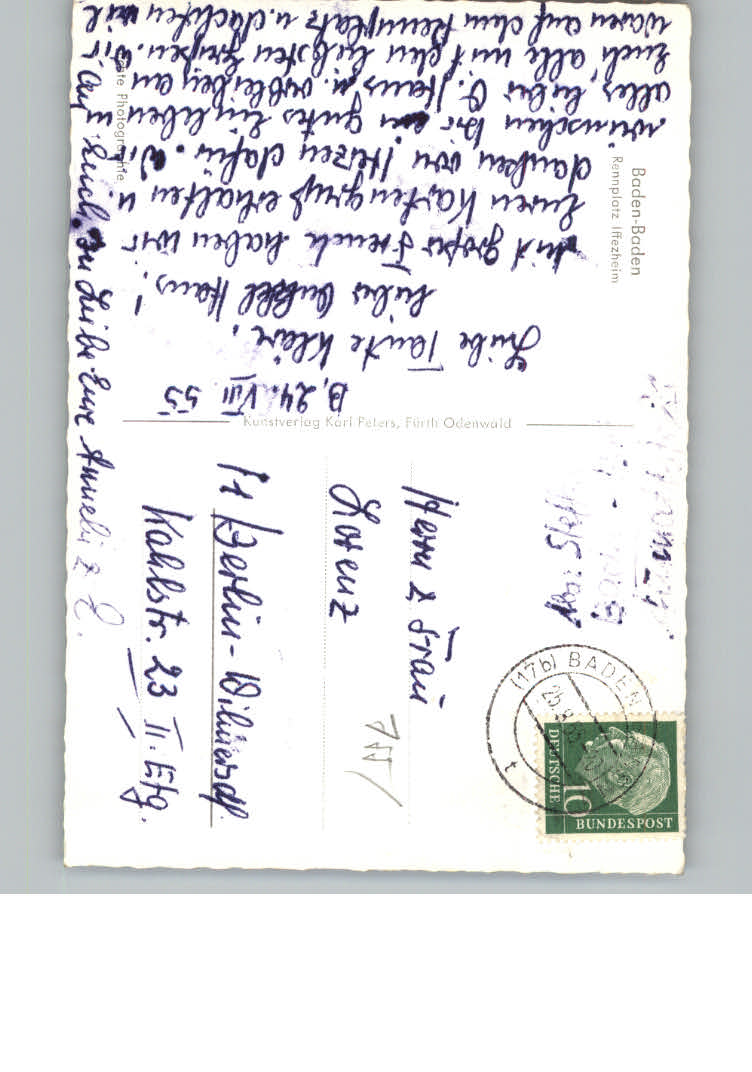 Baden-Baden
Rennplatz Iffezheim
B, 24. VIII 55
Liebe Tante Kläre,
lieber Onkel Hans!
Mit großer Freude haben wir
Euren Kartengruß erhalten u.
danken von Herzen dafür. Wir
wünschen Dir ein gutes Einleben u.
alles Liebe O. Hans u. verbleiben an
Euch alle mit den liebsten Grüßen. Wir
waren auf dem Rennplatz u. dachten viel
an Euch. In Liebe Eure
Echte Photographie
Kunstverlag Karl Peters, Fürth Odenwald
Herrn & Frau
Lorenz
1 Berlin-Wilmersdf.
Kahlstr. 23 II. Etg.
(17b) BADEN
25.8.55
t
DEUTSCHE
BUNDESPOST
10